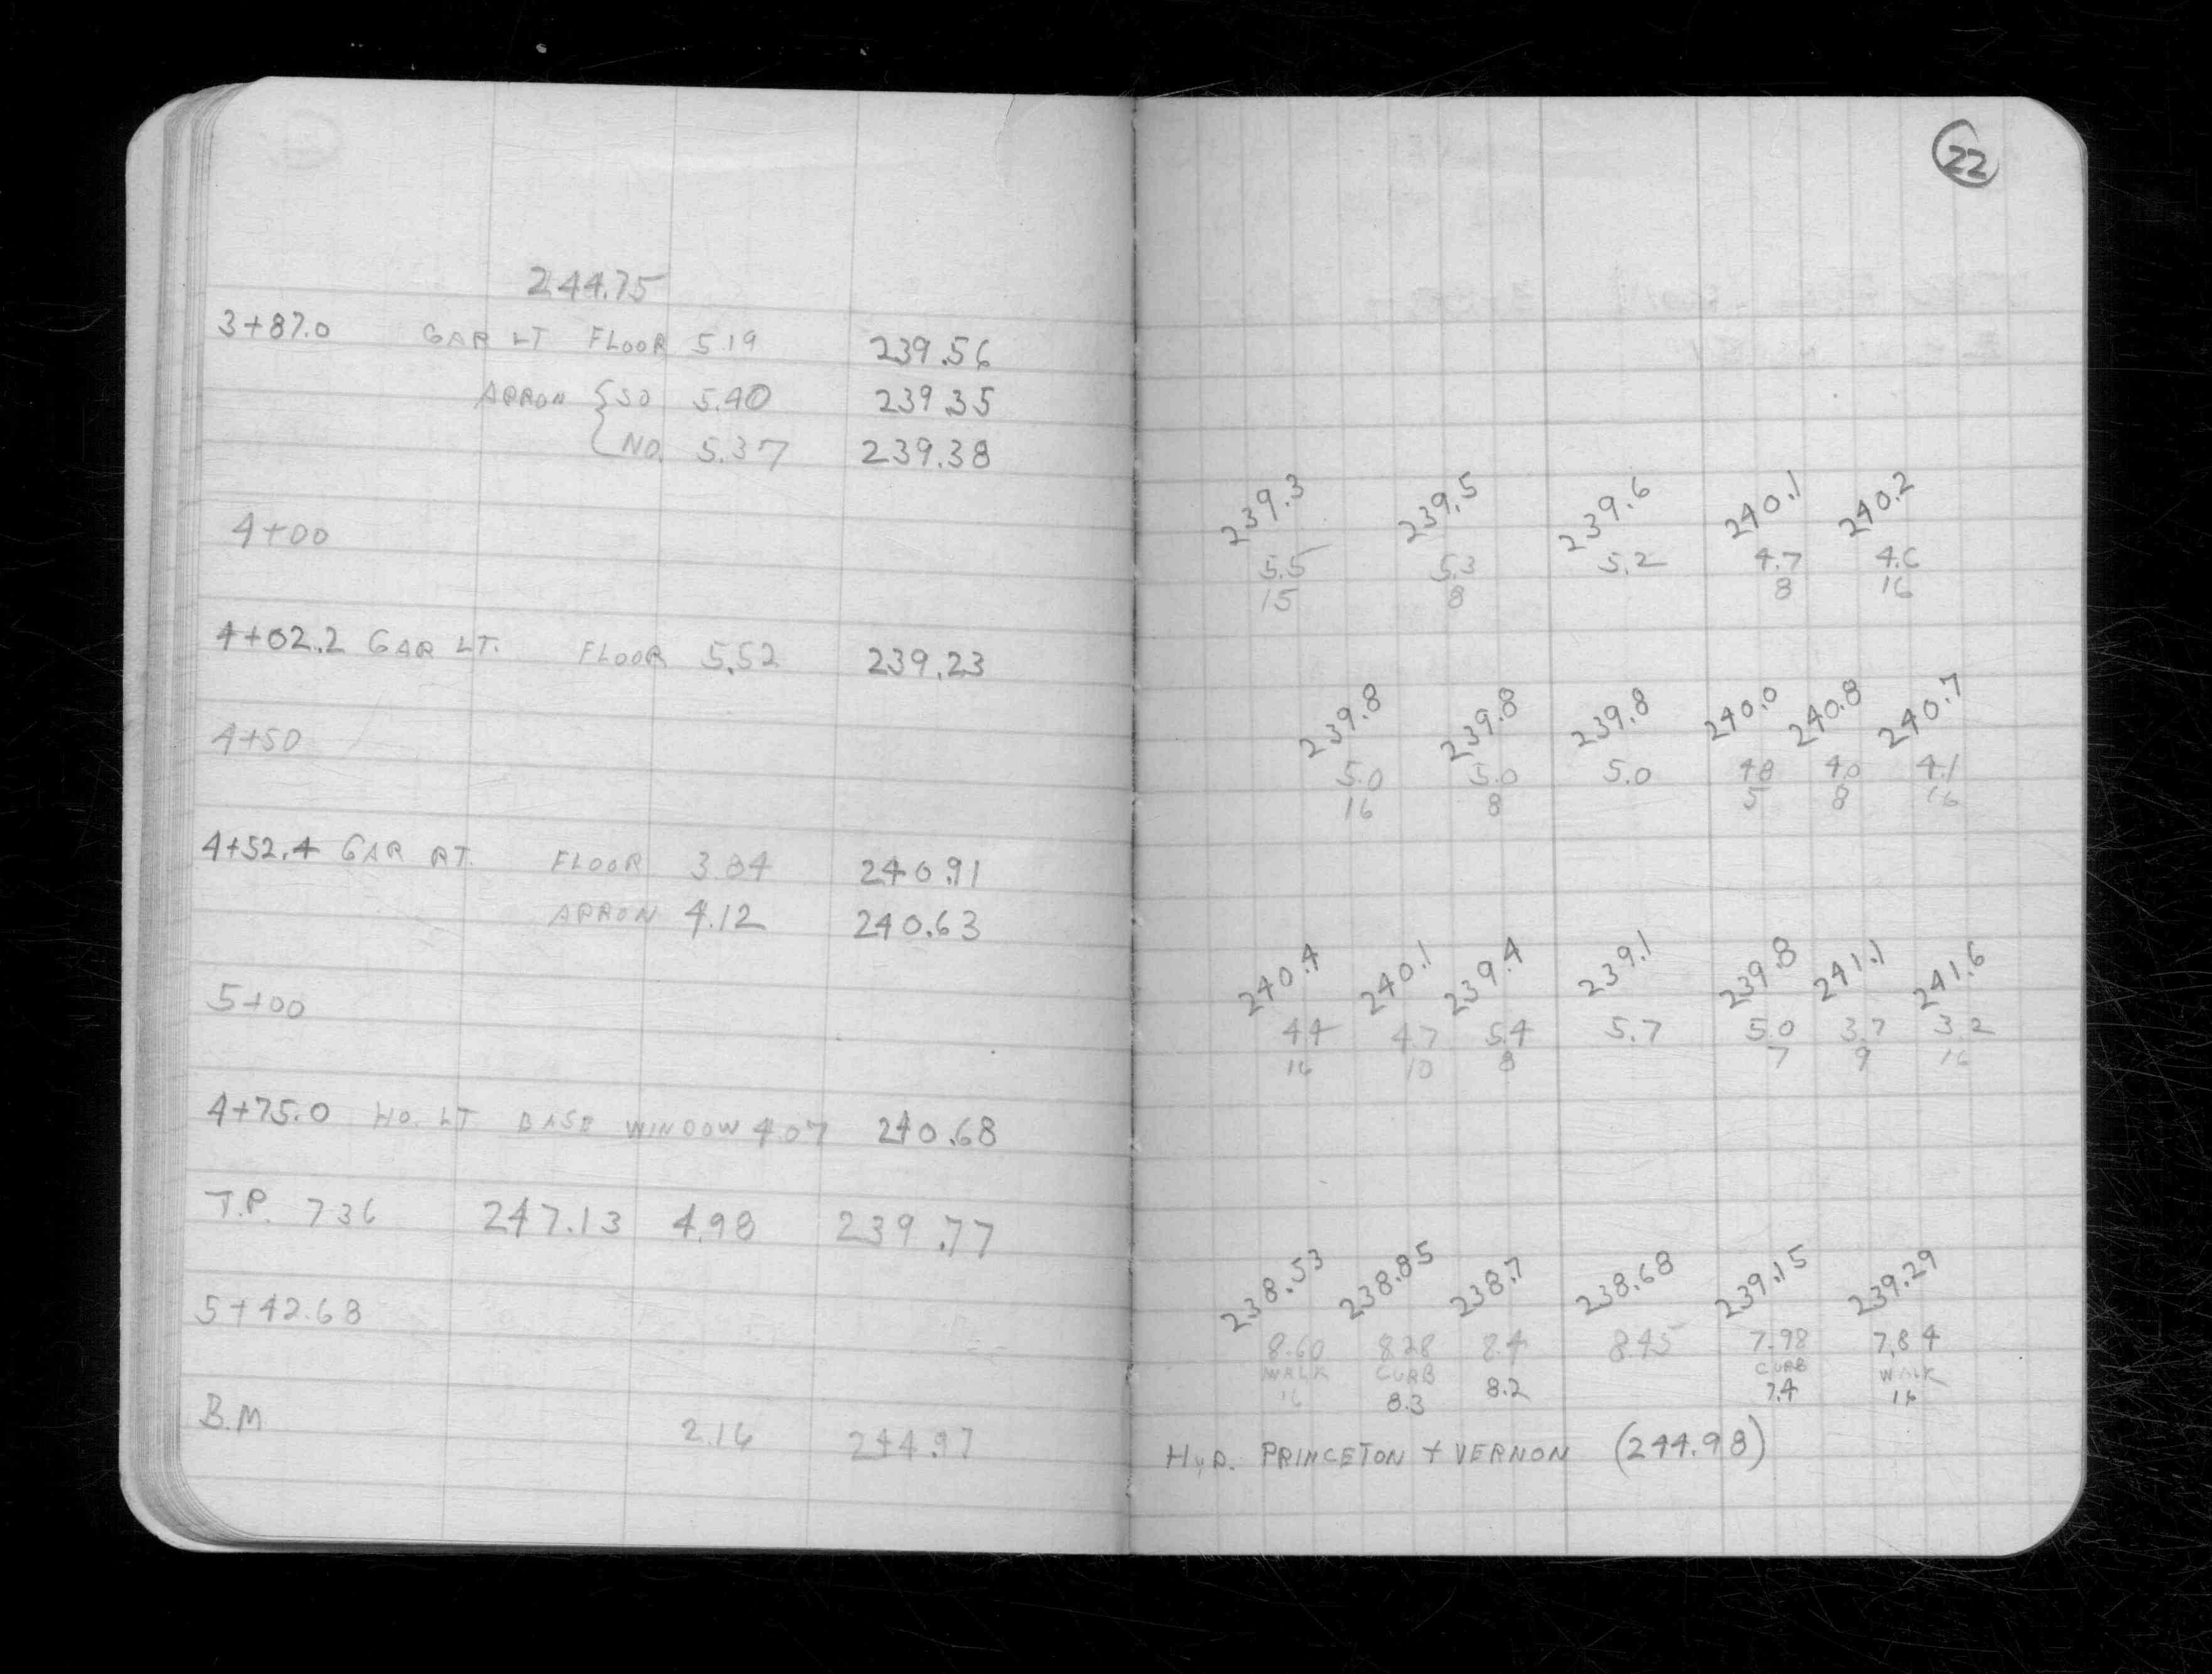 244.75
3+87.0 GAR LT FLOOR 5.19 239.56
APRON { SO 5.40 239.35
NO. 5.37 239.38
4+00
4+02.2 GAR LT. FLOOR 5.52 239.23
4+50
4+52.4 GAR RT. FLOOR 3.84 240.91
APRON 4.12 240.63
5+00
4+75.0 HO. LT BASE WINDOW 4.07 240.68
T.P. 7 36 247.13 4.98 239.77
5+42.68
B.M 2.16 244.97
22
239.3 239.5 239.6 240.1 240.2
5.5 5.3 5.2 4.7 4.6
15 8 8 16
239.8 239.8 239.8 240.0 240.8 240.7
5.0 5.0 5.0 4.8 4.0 4.1
16 8 5 8 16
240.4 240.1 239.4 239.1 239.8 241.1 241.6
4.4 4.7 5.4 5.7 5.0 3.7 3.2
16 10 8 7 9 16
238.53 238.85 238.7 238.68 239.15 239.29
8.60 8.28 8.4 8.45 7.98 7.84
WALK CURB CURB WALK
16 8.3 8.2 7.4 16
HYD. PRINCETON + VERNON (244.98)